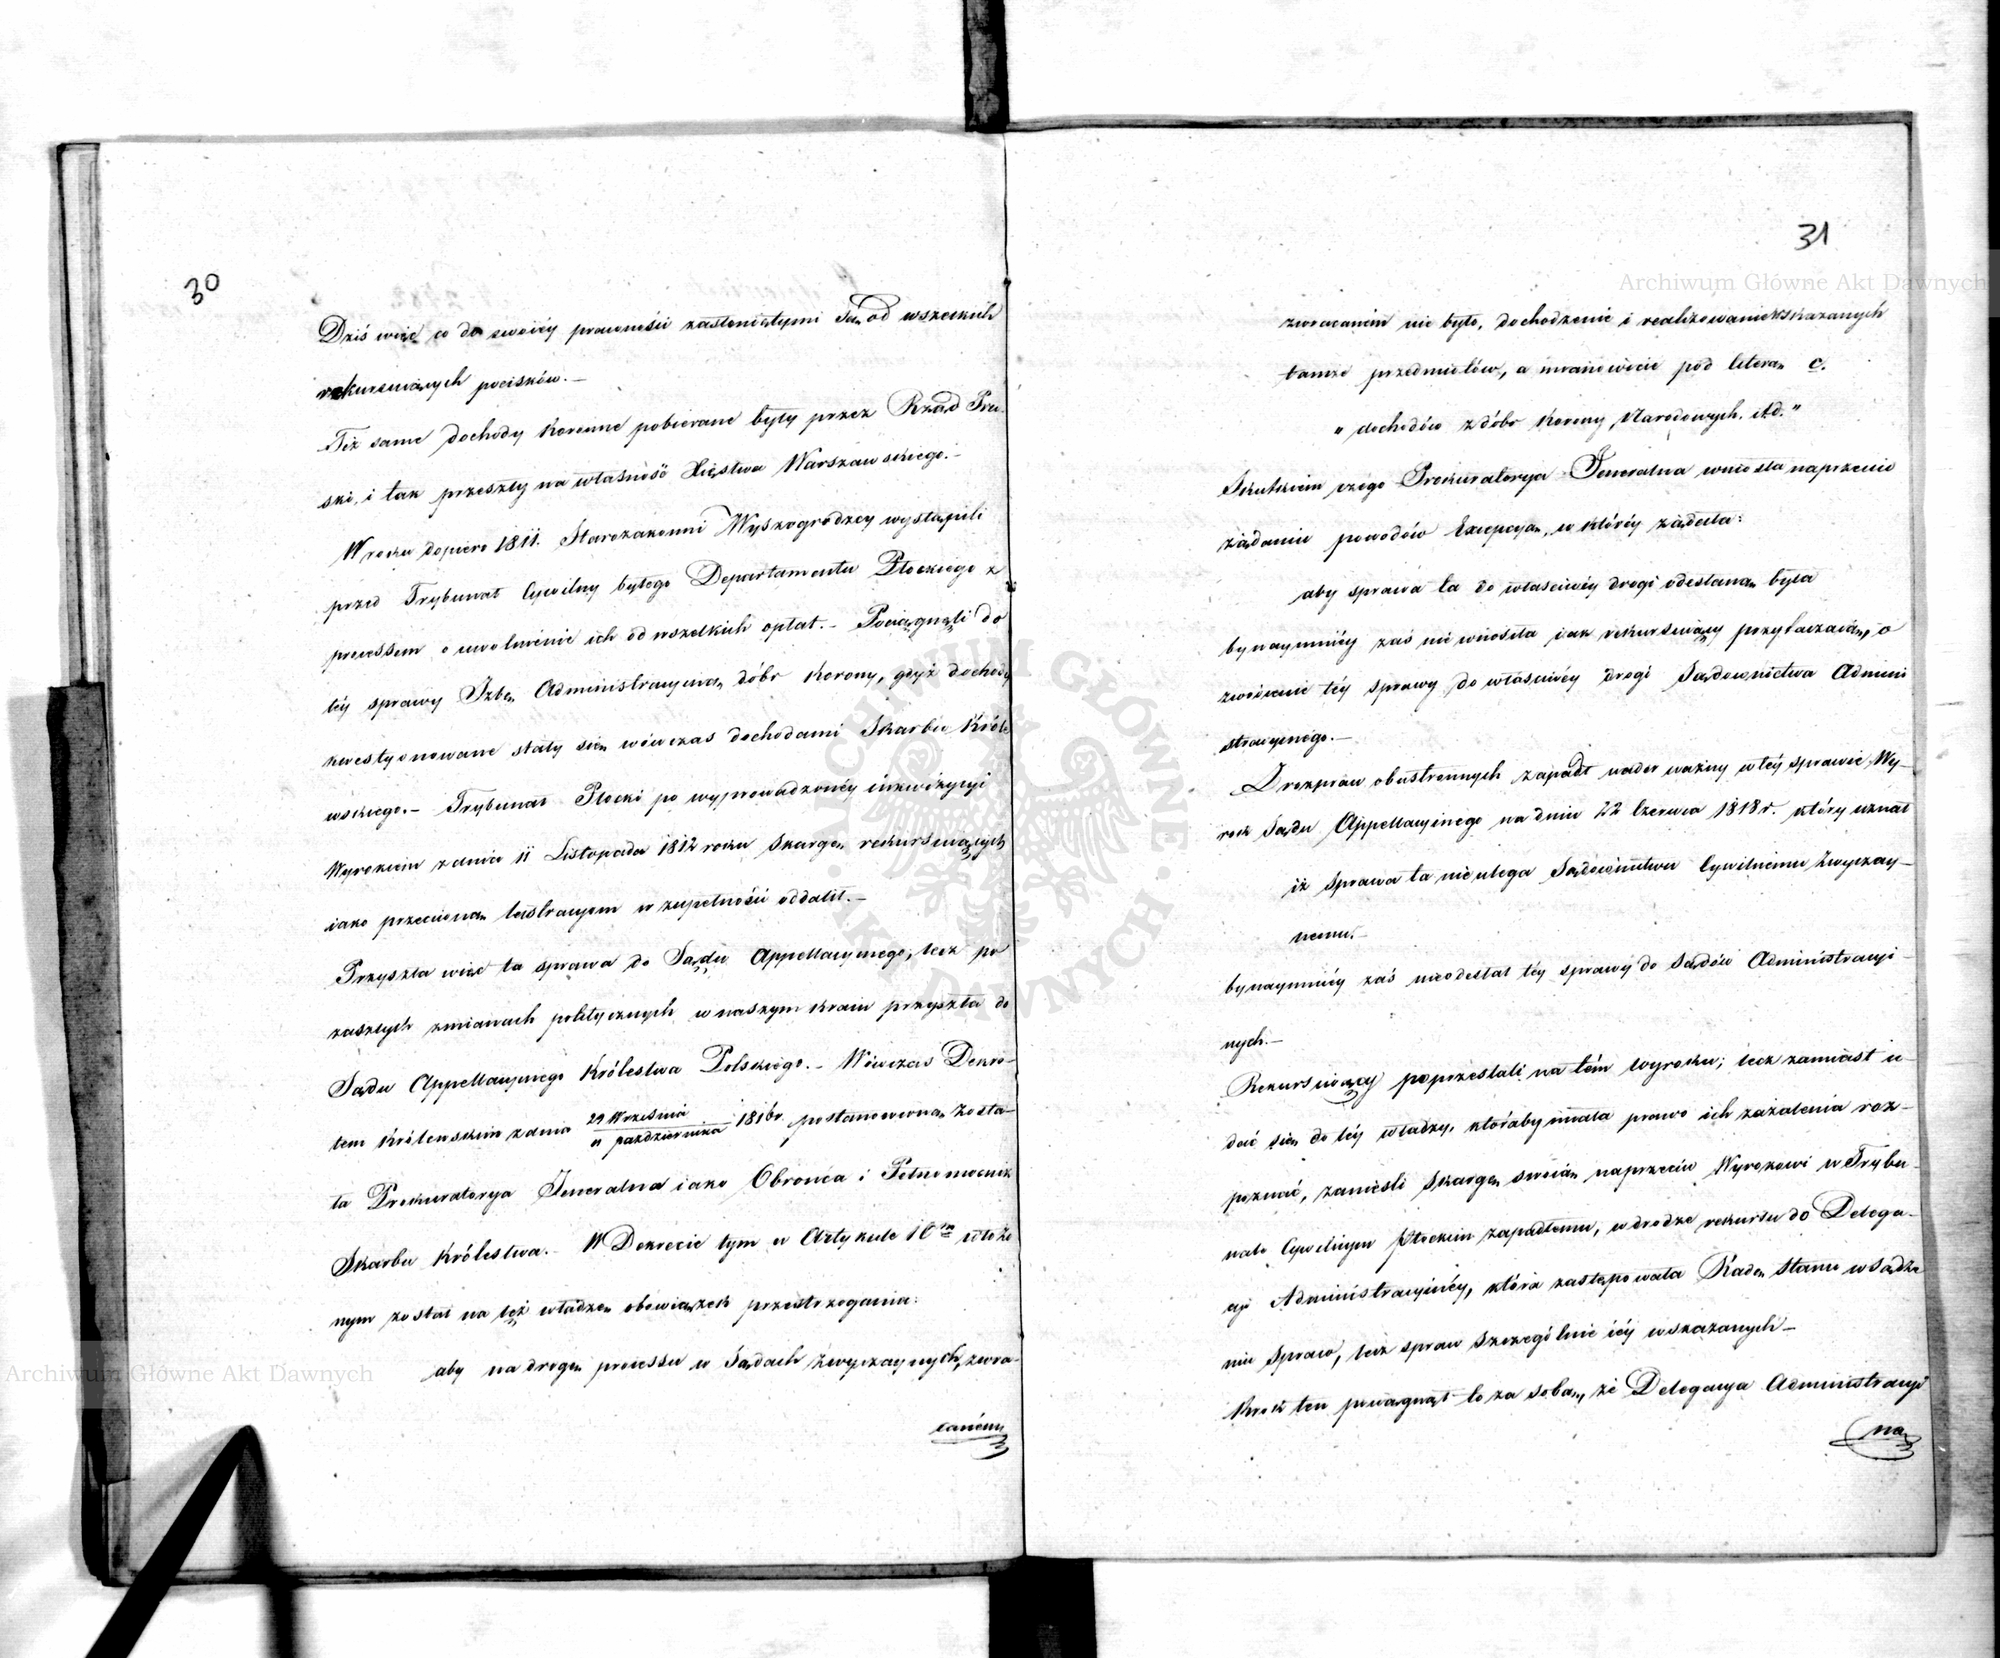 30
Dziś więc co do swoiéy prawności zasłoniętymi są od wszelkich
rekursuiących pocisków. —
Też same dochody koronne pobierane były przez Rząd Pru-
ski, i tak przeszły na własność Xięstwa Warszawskiego. —
W roku dopiero 1811. Starozakonni Wyszogrodzcy wystąpili
przed Trybunał Cywilny byłego Departamentu Płockiego z
processem o uwolnienie ich od wszelkich opłat. — Pociągnęli do
téy sprawy Izbę Administracyiną dóbr Korony, gdyż dochody
kwestyonowane stały się wówczas dochodami Skarbu Króle
wskiego. — Trybunał Płocki po wyprowadzonéy inkwizycyi
Wyrokiem z dnia 11 Listopada 1812 roku Skargę rekursuiących
iako przeciwną lustracyom w zupełności oddalił. —
Przyszła więc ta sprawa do Sądu Appellacyinego, lecz po
zaszłych zmianach politycznych w naszym kraiu przyszła do
Sądu Appellacyinego Królestwa Polskiego. — Wówczas Dekre-
tem Królewskim z dnia 29 Września / 11 października 1816 r. postanowioną zosta-
ła Prokuratorya Jeneralna iako Obrońca i Pełnomocnik
Skarbu Królestwa. — W Dekrecie tym w Artykule 10m włożo
nym został na tęż władzę obowiązek przestrzegania:
aby na drogę processu w Sądach zwyczaynych, zwra-
caném
31
zwracaném nie było, dochodzenie i realizowanie wskazanych
tamże przedmiotów, a mianowicie pod literą c.
" dochodów z dóbr Korony Narodowych. itd. "
Skutkiem czego Prokuratorya Jeneralna wniosła naprzeciw
żądaniu powodów Excepcyą, w któréy żądała:
aby sprawa ta do właściwéy drogi odesłaną była
bynaymniéy zaś nie wnosiła iak rekursuiący przytaczaią, o
zwrócenie téy sprawy do właściwéy drogi Sądownictwa Admini
stracyinego. —
Z rozpraw obustronnych zapadł nader ważny w téy sprawie Wy-
rok Sądu Appellacyinego na dniu 22 Czerwca 1818 r. który uznał
iż sprawa ta nie ulega Sądownictwu Cywilnemu Zwyczay-
nemu. —
bynaymniéy zaś nieodesłał téy sprawy do Sądów Administracyi-
nych. —
Rekursuiący poprzestali na tém Wyroku; lecz zamiast u-
dać się do téy władzy, któraby miała prawo ich zażalenia roz-
poznać, zanieśli Skargę swoią naprzeciw Wyrokowi w Trybu-
nale Cywilnym Płockim zapadłemu, w drodze rekursu do Delega-
cyi Administracyinéy, która zastępowała Radę Stanu w sądze
niu Spraw, lecz spraw Szczególnie iéy wskazanych —
Krok ten pociągnął to za sobą, że Delegacya Administracyi
na
Archiwum Główne Akt Dawnych
Archiwum Główne Akt Dawnych
ARCHIWUM GŁÓWNE · AKT DAWNYCH ·